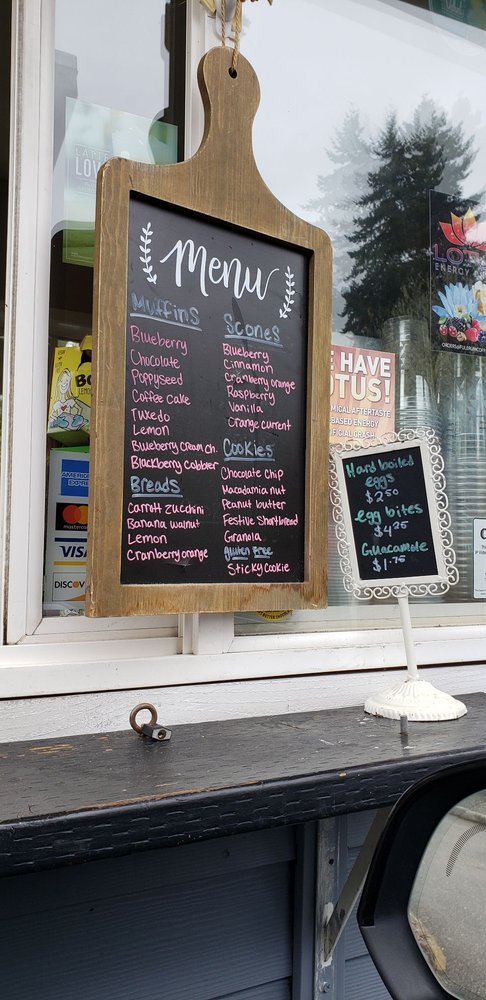 Menu
Muffins
Blueberry
Chocolate
Poppyseed
Coffee Cake
Tuxedo
Lemon
Blueberry Cream ch.
Blackberry Cobbler
Breads
Carrott Zucchini
Banana walnut
Lemon
Cranberry orange
Scones
Blueberry
Cinnamon
cranberry orange
Raspberry
Vanilla
Orange currant
Cookies
Chocolate Chip
Macadamia nut
Peanut butter
Festive Shortbread
Granola
gluten Free
Sticky Cookie
Hard boiled
eggs
$2.50
egg bites
$4.25
Guacamole
$1.75
LOVE
HAVE
OTUS!
MICAL AFTERTASTE
BASED ENERGY
ENERGY
AMERICAN
EXPRESS
MasterCard
VISA
DISCOVER